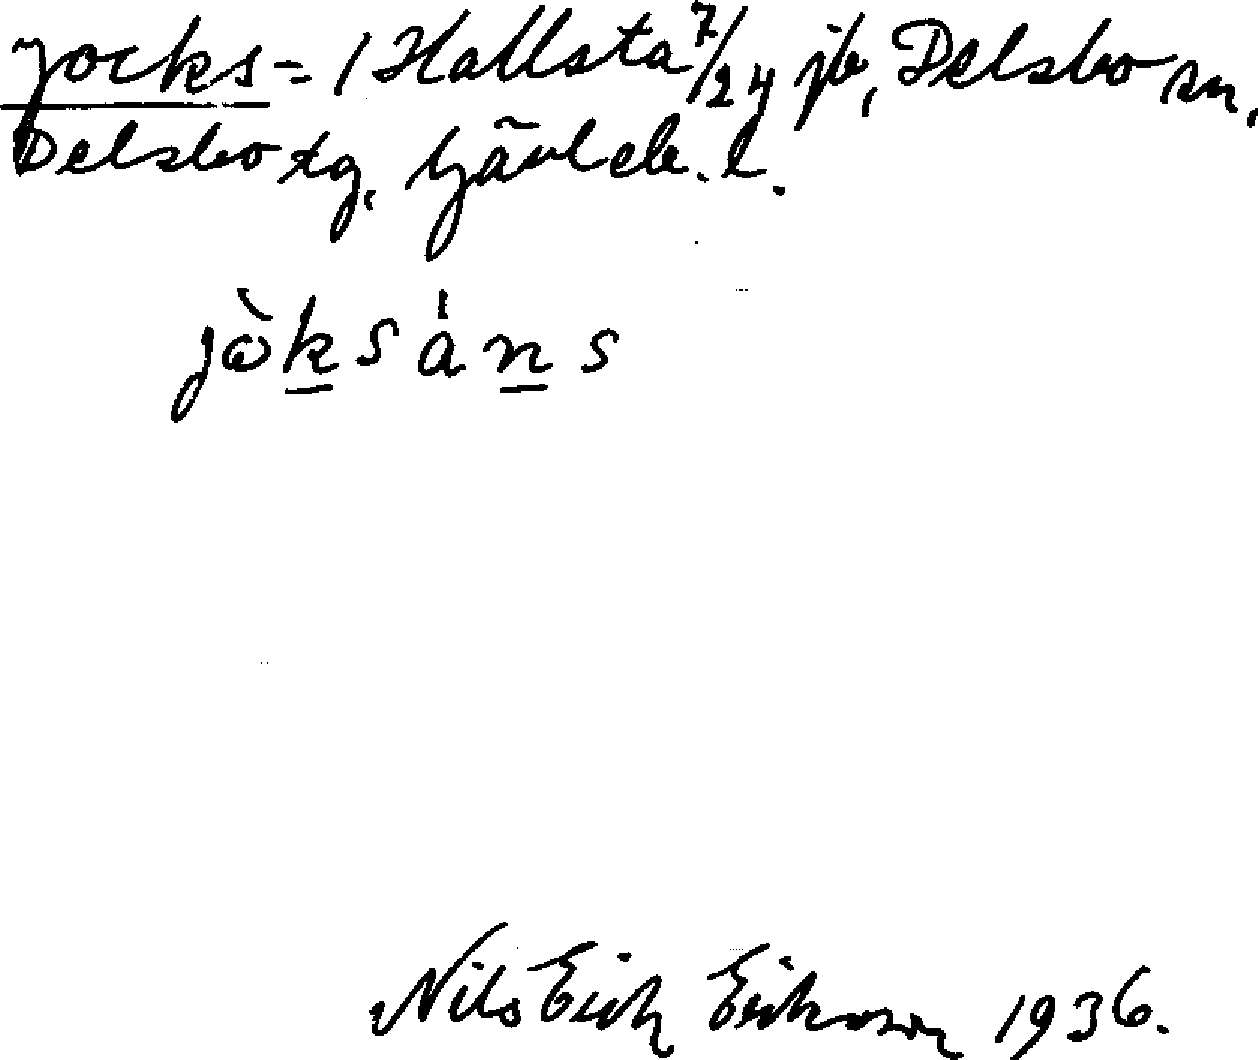 Jocks = / Hallsta 7/24 jb, Delsbo sn,
Delsbo tg, Gävleb. l.
jòksáns
Nils Erik Erikson 1936.